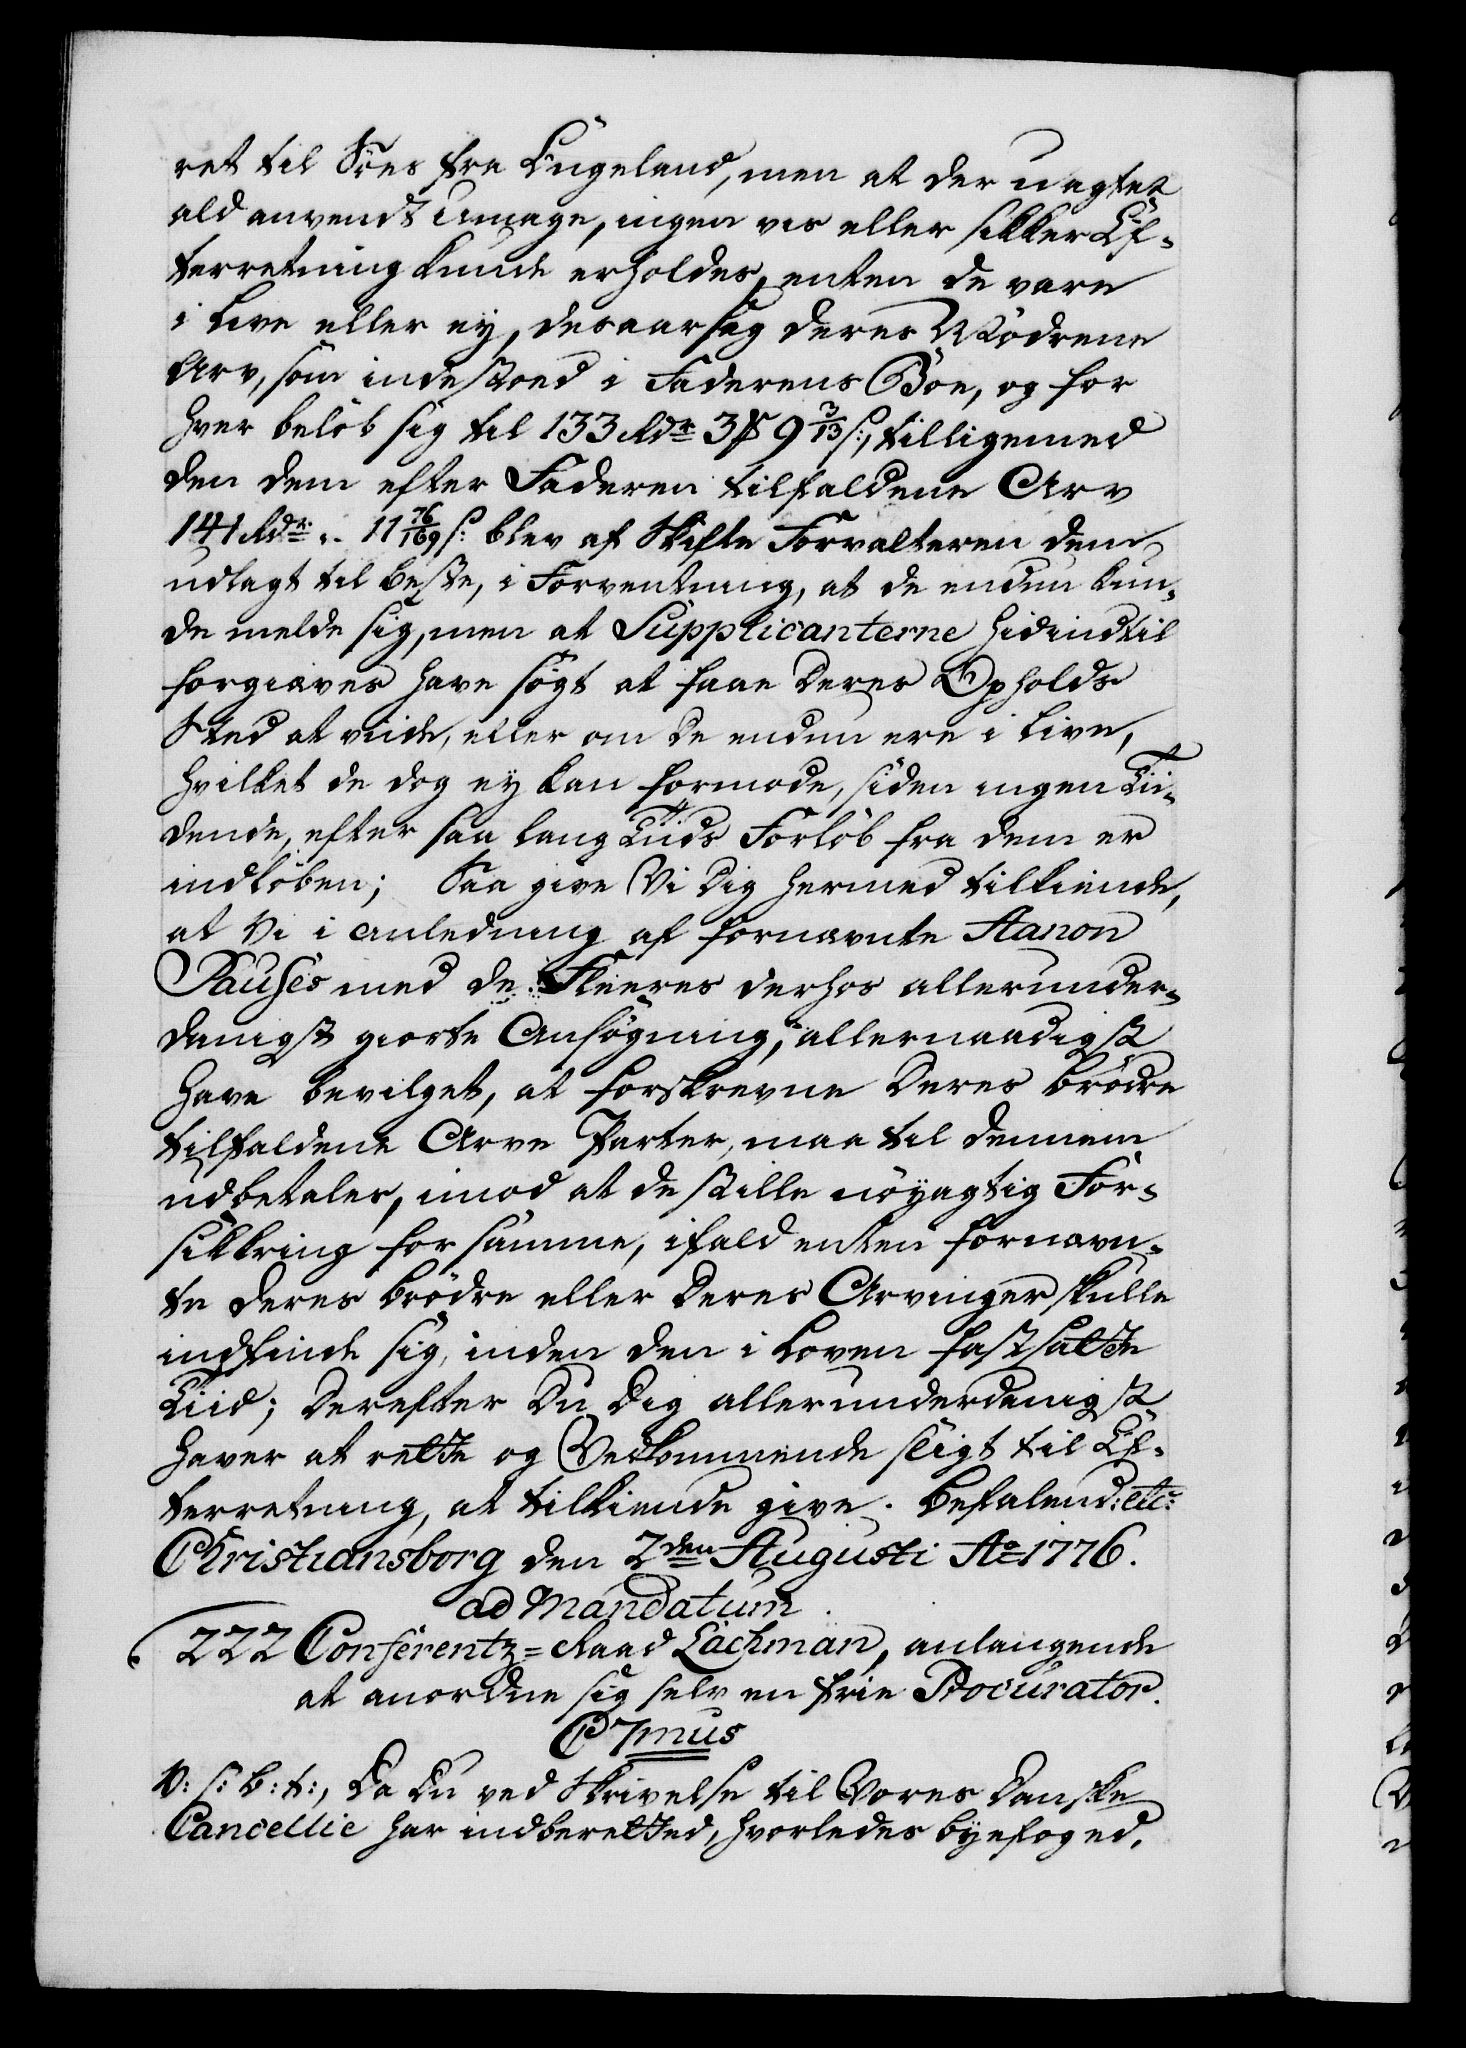 ret til Søes fra Engeland, men at der uagtet
ald anvendt Umage, ingen vis eller sikker Ef-
terretning kunde erholdes, enten de vare
i Live eller ey, desaarsag deres Mødrene
Arv, som indestoed i Faderens Boe, og for
hver beløb sig til 133 Rdr 3 ₰ 9 3/13 s:, tilligemed
den dem efter Faderen tilfaldene Arv
141 Rdr „- 11 76/169 s: blev af Skifte Forvalteren dem
udlagt til beste, i Forventning, at de endnu kun-
de melde sig, men at Supplicanterne hidindtil
forgiæves have søgt at faae deres Opholds
Sted at viide, eller om de endnu ere i Live,
hvilket de dog ey kan formode, siden ingen Tii-
dende, efter saa lang Tiids Forløb fra dem er
indløben; Saa give Vi Dig hermed tilkiende,
at Vi i anledning af fornævnte Aanon
Pauses med de Fleeres derhos allerunder-
danigst giorte Ansøgning, allernaadigst
have bevilget, at forskrevne deres Brødre
tilfaldene Arve Parter, maa til dennem
udbetales, imod at de stille nøyagtig For-
sikkring for samme, ifald enten fornævn-
te deres Brødre eller deres Arvinger skulle
indfinde sig, inden den i Loven fastsatte
Tiid; Derefter Du Dig allerunderdanigst
haver at rette og Vedkommende sligt til Ef-
terretning, at tilkiende give. Befalend: etc:
Christiansborg den 2den Augusti Ao 1776.
ad Mandatum.
222 Conferentz-Raad Lachman, anlangende
at anordne sig selv en frie Procurator.
C 7mus
V: S: B: t:, Da Du ved Skrivelse til Vores Danske
Cancellie har indberetted, hvorledes Byefoged,